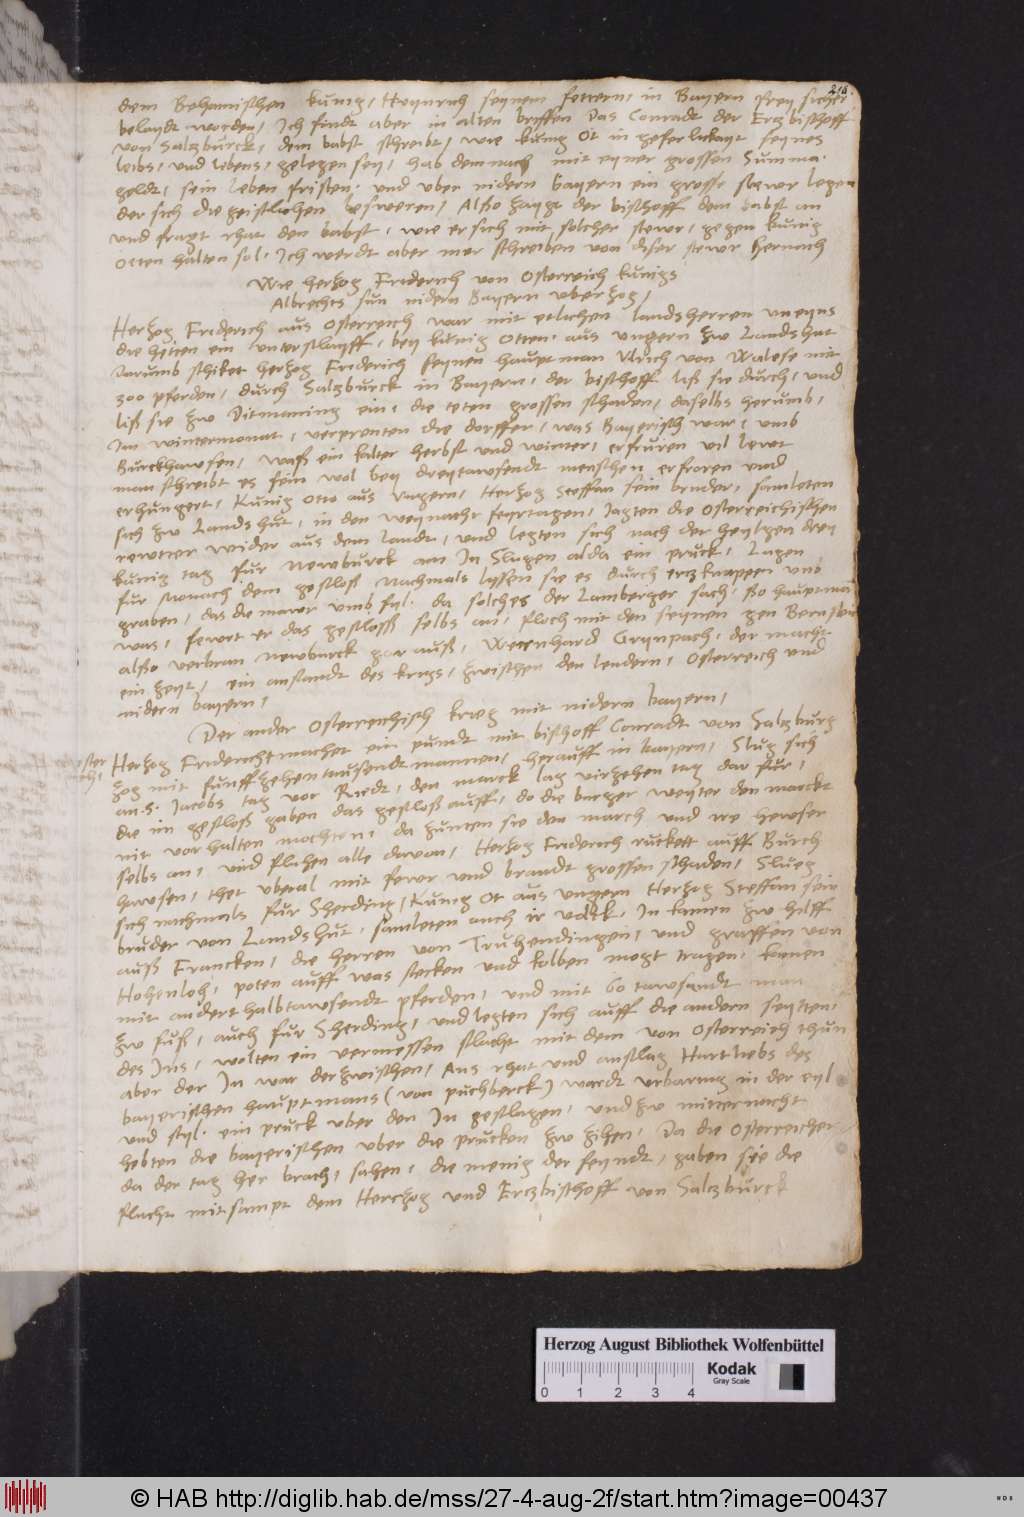 216.
dem Behamischen kunig, Heynrich seynem fettern, in Bayern frey sicher
belaydt worden, Ich findt aber in alten briffen das Conradt der Ertzbischoff
von Saltzburck, dem babst schreibt, wie kunig Ot in geferlickayt seynes
leibs, und lebens, gelegen sey, hab demnach mit eyner grossen Summa
geldt, sein leben fristen. und uber nidern bayern ein grosse stewr legen
der sich die geistlichen beschweren, Alßo zaygt der bischoff dem babst an
und fragt rhat den babst, wie er sich mit solcher stewr, gegen kunig
Otten halten sol. Ich werdt aber mer schreiben von diser stewr hernach
Wie herzog Friderich von Osterreich kunigs
Albrechts sun nidern Bayern uberzog,
Herzog Friderich aus Osterreich war mit etlichen landsherren uneyns
die hetten ein unterschlayff, bey kunig Otten, aus ungern zw Landshut
darumb schiket herzog Friderich seynen hauptman Ulrich von Walsse mit
300 pferden, durch Saltzburck in Bayern, der bischoff liß sie durch, und
liß sie zw Ditmaning ein, die teten grossen schaden, daselbs herumb,
Im wintermonat, verprenten die dorffer, was Bayerisch war, umb
Burckhawsen, waß ein kalter herbst und winter, erfruren vil lewt
man schreibt es sein wol bey dreytawsendt menschen erfroren und
erhungert, Kunig Otto aus Ungern, Herzog Steffan sein bruder, samleten
sich zw Landshut, in den weynacht feyrtagen, Jagten die Osterreichischen
rewtter wider aus dem landt, und legten sich nach der heylgen drey
kunig tag fur Newburck am In Slugen alda ein pruck, Lagen
fur Monach dem geschloß nachmals lyssen sie es durch ertzknappen und
graben, das die mawr umb fyl. da solches der Lamberger sach, so hauptman
was, fewrt er das geschlosß selbs an, floch mit den seynem gen Bernstein
alßo verbran newburck gar auß, Werenhard Grynpach, der macht
ein zeyt, ein anstandt des kriegs, zwischen den lendern, Osterreich und
nidern bayern,
Der ander Osterreichisch krieg mit nidern bayern,
Herzog Friderich machet ein pundt mit bischoff Conradt von Saltzburg
zog mit funffzehentausendt mannen, herauff in bayern, Slug sich
an S. Jacobs tag vor Riedt, den marck lag virzehen tag dar fur,
die im geschloß gaben das geschloß auff, do die burger weyter den marckt
nit vor halten mochten, da zunten sie den march und ire hewser
selbs an, und fluhen alle davon, Herzog Friderich ruckett auff Burck
hawsen, thet uberal mit fewr und brandt grossen schaden, Slueg
sich nachmals fur Sherding, Kunig Ot aus ungern Herzog Steffan sein
bruder von Landshut, samleten auch ir volck, In kamen zw hilff
auß Francken, die herren von Truhendingen, und graffen von
Hohenloh, poten auff was stecken und kolben mogt tragen, kamen
mit anderthalbtawsendt pferden, und mit 60 tawsendt man
zw fuß, auch fur Sherding, und legten sich auff die andern seytten,
des Ins, wolten ein vermessen schlacht mit dem von Osterreich thun
aber der In war derzwischen, Aus rhat und anschlag Hartliebs des
bayerischen hauptmans (von puchberck) wardt urbaring in der eyl
und styl. ein pruck uber den In geschlagen, und zw mitternacht
hebten die bayerischen uber die prucken zw zihen, Da die Osterreicher
da der tag her brach, sahen, die menig der feyndt, gaben sie die
flucht mit sampt dem Herczog und Erczbischoff von Salczburck
Herzog August Bibliothek Wolfenbüttel
0 1 2 3 4
Kodak
Gray Scale
© HAB http://diglib.hab.de/mss/27-4-aug-2f/start.htm?image=00437